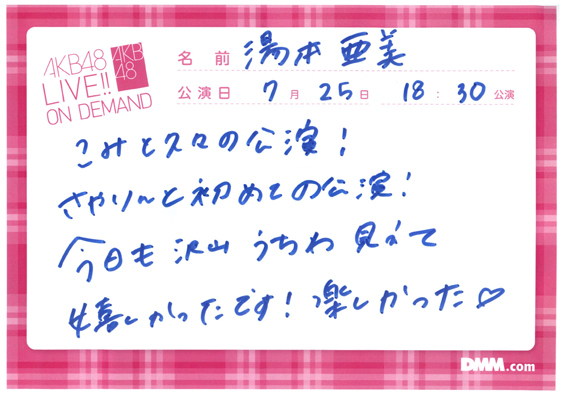 AKB48
LIVE!!
ON DEMAND
AKB
48
名前 湯本亜美
公演日 7月25日 18:30公演
こみと久々の公演!
さやりんと初めての公演!
今日も沢山うちわ見えて
嬉しかったです!楽しかった♡
DMM.com